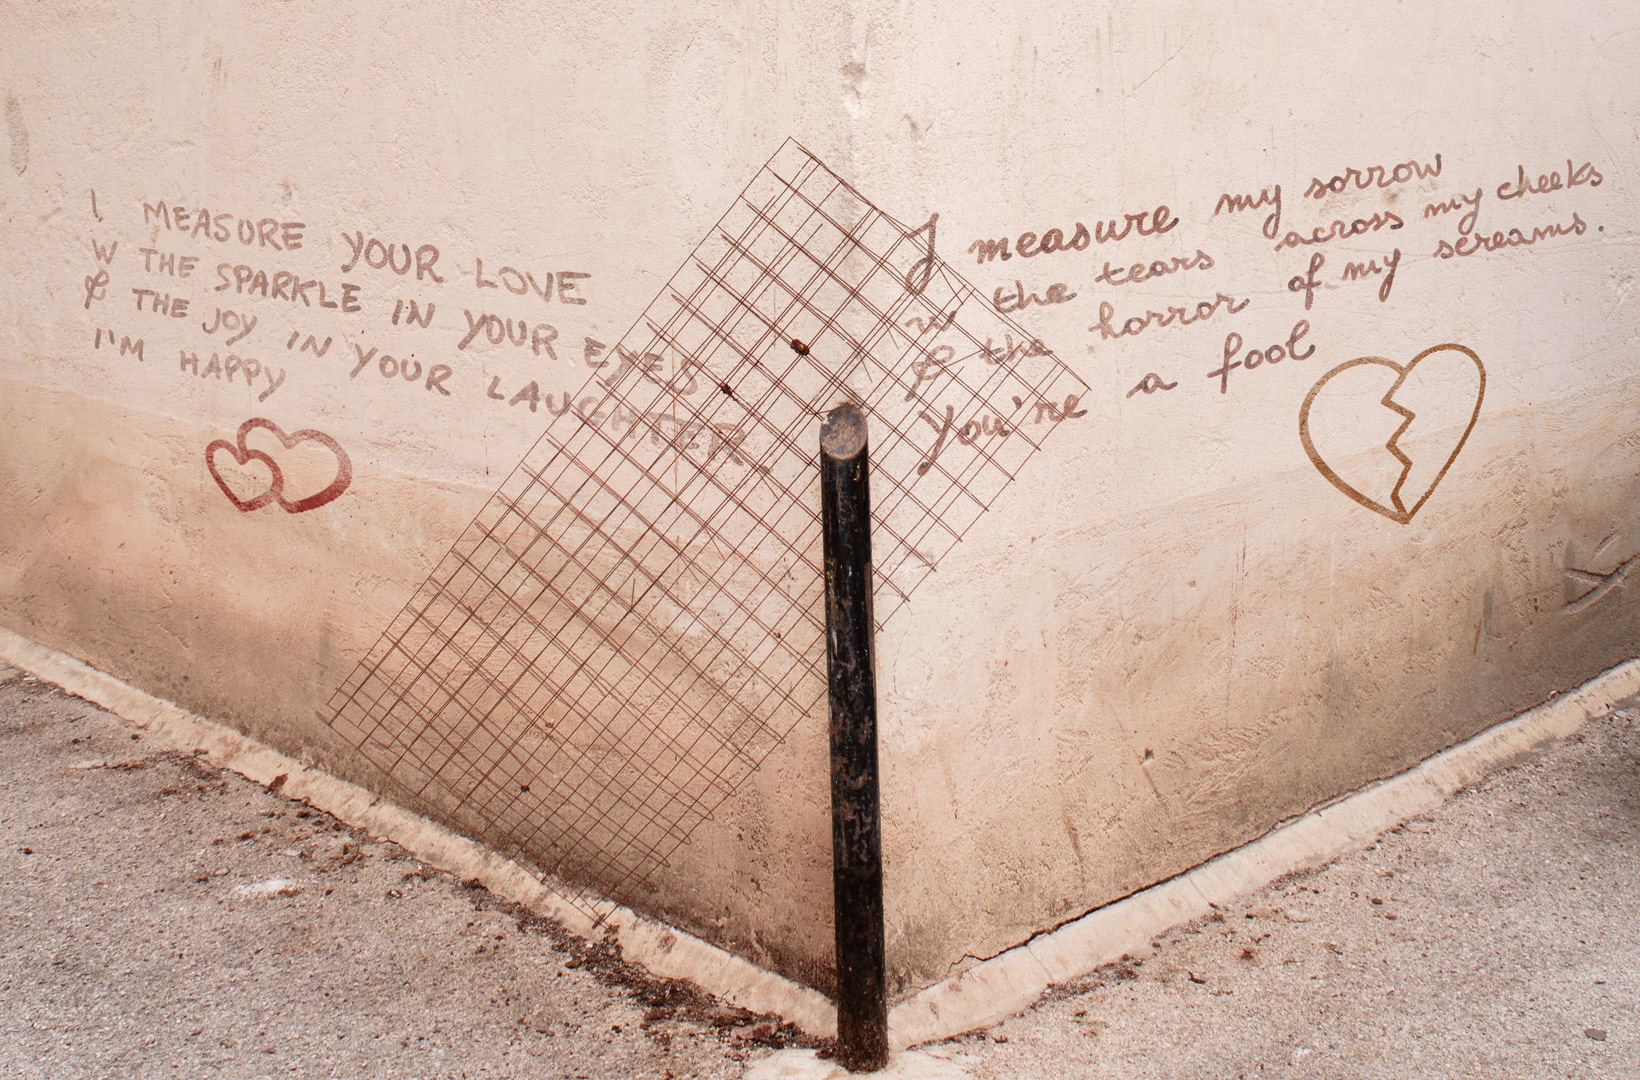 I MEASURE YOUR LOVE
W THE SPARKLE IN YOUR EYES
& THE JOY IN YOUR LAUGHTER.
I'M HAPPY
I measure my sorrow
w the tears across my cheeks
& the horror of my screams.
You're a fool